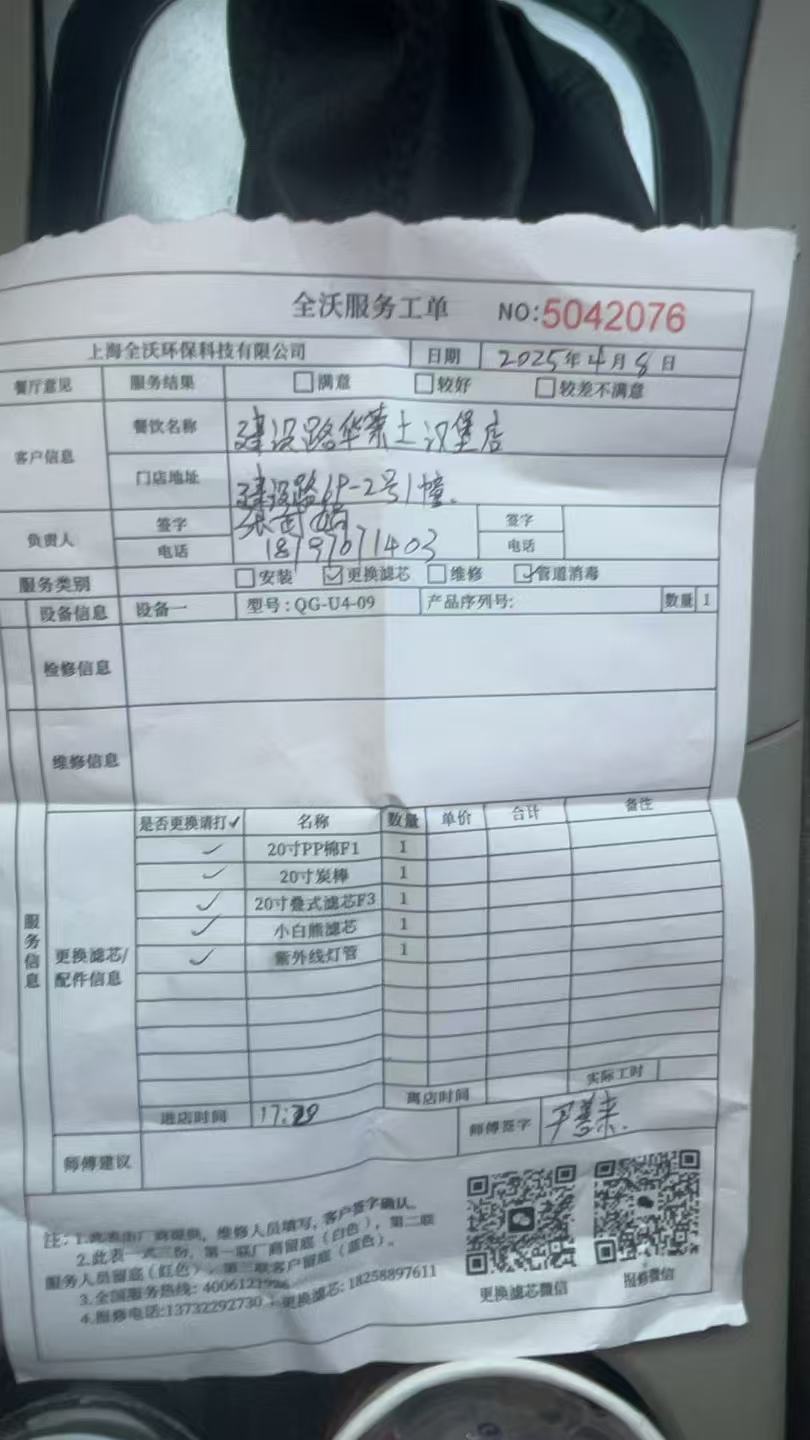 全沃服务工单 NO:5042076
上海全沃环保科技有限公司 日期 2025年4月8日
餐厅意见 服务结果 满意 较好 较差不满意
客户信息 餐饮名称 建设路华莱士汉堡店
门店地址 建设路69-2号1幢
负责人 签字 签字
电话 18197071403 电话
服务类别 安装 ✓更换滤芯 维修 ✓管道消毒
设备信息 设备一 型号:QG-U4-09 产品序列号: 数量 1
检修信息
维修信息
服务信息
更换滤芯/
配件信息
是否更换请打✓ 名称 数量 单价 合计 备注
✓ 20寸PP棉F1 1
✓ 20寸炭棒 1
✓ 20寸叠式滤芯F3 1
✓ 小白熊滤芯 1
✓ 紫外线灯管 1
实际工时
进店时间 17:29 离店时间
师傅签字
师傅建议
注:1.此表由厂商提供,维修人员填写,客户签字确认。
2.此表一式三份,第一联厂商留底(白色),第二联
服务人员留底(红色),第三联客户留底(蓝色)。
3.全国服务热线:
4.报修电话:13732292730 更换滤芯:18258897611
更换滤芯微信 报修微信